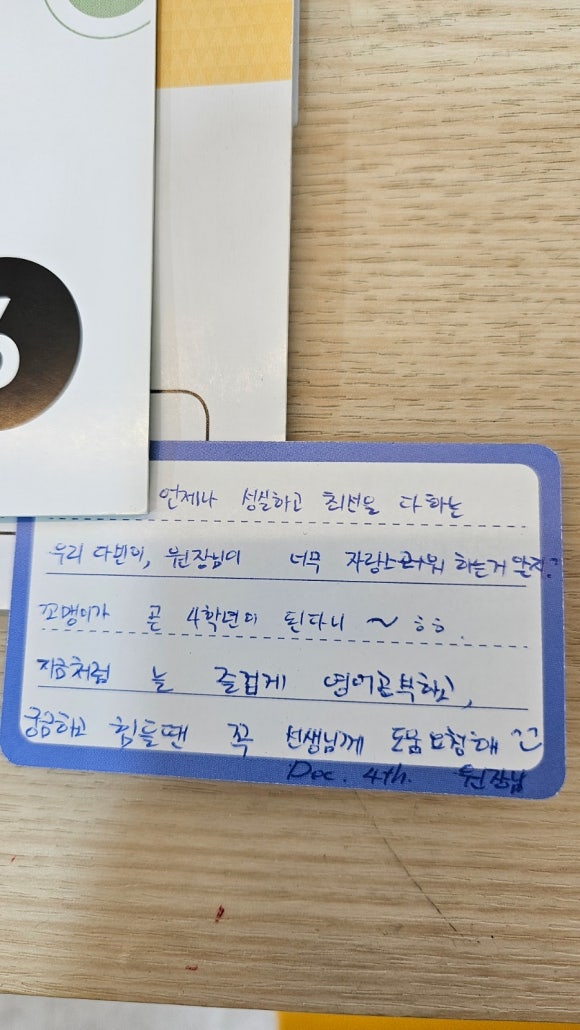 6
언제나 성실하고 최선을 다하는
우리 다빈이, 원장님이 너무 자랑스러워 하는거 알지?
꼬맹이가 곧 4학년이 된다니 ~ ㅎㅎ.
지금처럼 늘 즐겁게 영어공부하고,
궁금하고 힘들땐 꼭 선생님께 도움요청해
Dec. 4th. 원장님